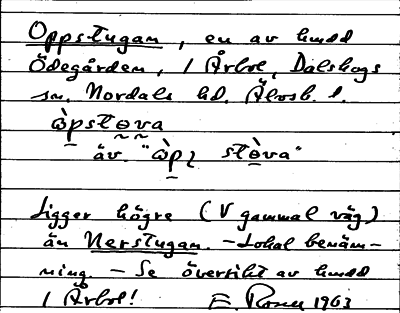 Oppstugan, en av hmd
Ödegården, 1 Årbol, Dalskogs
sn. Nordals hd. Älvsb. l.
ὼpstɵva
äv. "ὼpɩ stɵ̀va"
Ligger högre (V gammal väg)
än Nerstugan. – Lokal benäm-
ning. – Se översikt av hmd
1 Årbol! E. Rosen 1963